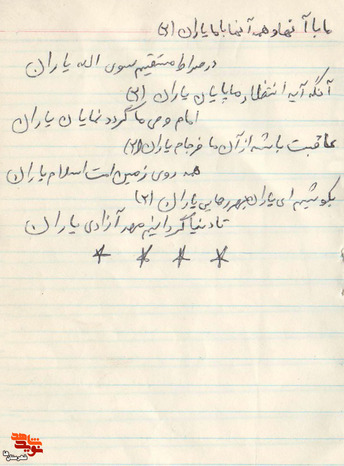 ما با آنها و همه آنها با ما یاران (۲)
در صراط مستقیم سوی الله یاران
آنگه آید انتظار ما پایان یاران (۲)
امام وحی ما گردد نمایان یاران
عاقبت باشد از آن ما فرجام یاران (۲)
همه روی زمین امت اسلام یاران
بکوشیم ای یاران بهر رهایی یاران (۲)
تا دنیا گردانیم مهد آزادی یاران
* * * *
نوید شاهد